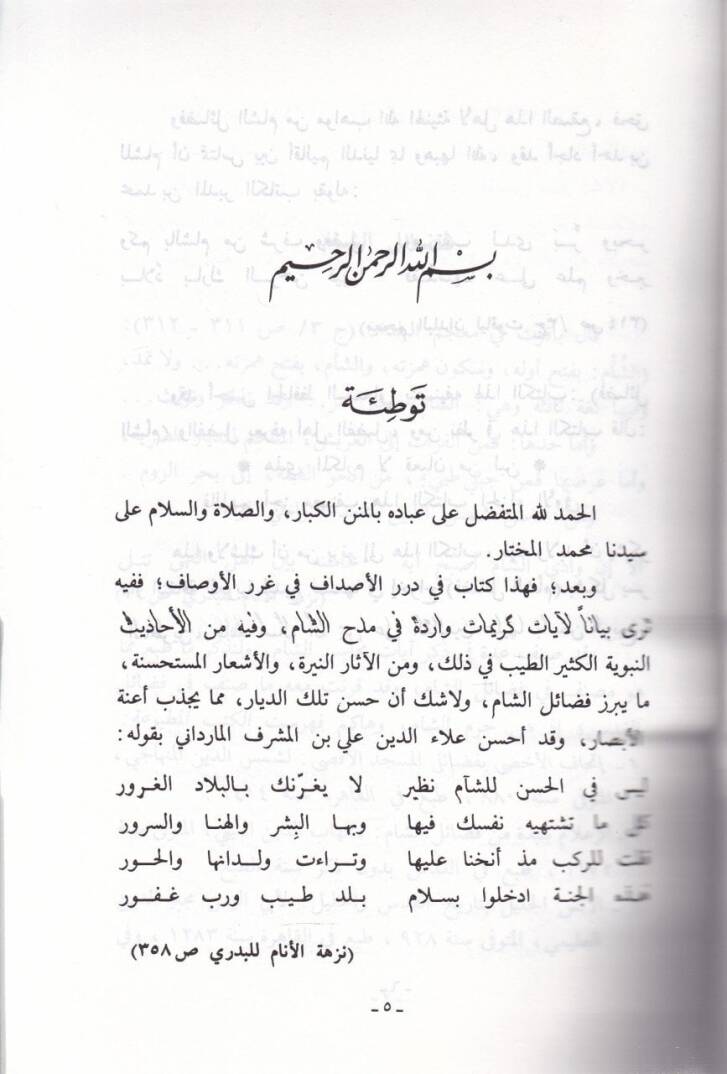 بسم الله الرحمن الرحيم
تَوطِئَة
الحمد لله المتفضل على عباده بالمنن الكبار، والصلاة والسلام على
سيدنا محمد المختار.
وبعد؛ فهذا كتاب في درر الأصداف في غرر الأوصاف؛ ففيه
ترى بياناً لآيات كريمات واردة في مدح الشام، وفيه من الأحاديث
النبوية الكثير الطيب في ذلك، ومن الآثار النيرة، والأشعار المستحسنة،
ما يبرز فضائل الشام، ولاشك أن حسن تلك الديار، مما يجذب أعنة
الأبصار، وقد أحسن علاء الدين علي بن المشرف المارداني بقوله:
ليس في الحسن للشآم نظير لا يغرّنك بالبلاد الغرور
كل ما تشتهيه نفسك فيها وبها البِشر والهنا والسرور
قلت للركب مذ أنخنا عليها وتراءت ولدانها والحور
هذه الجنة ادخلوا بسلام بلد طيب ورب غفور
(نزهة الأنام للبدري ص٣٥٨)
-٥-